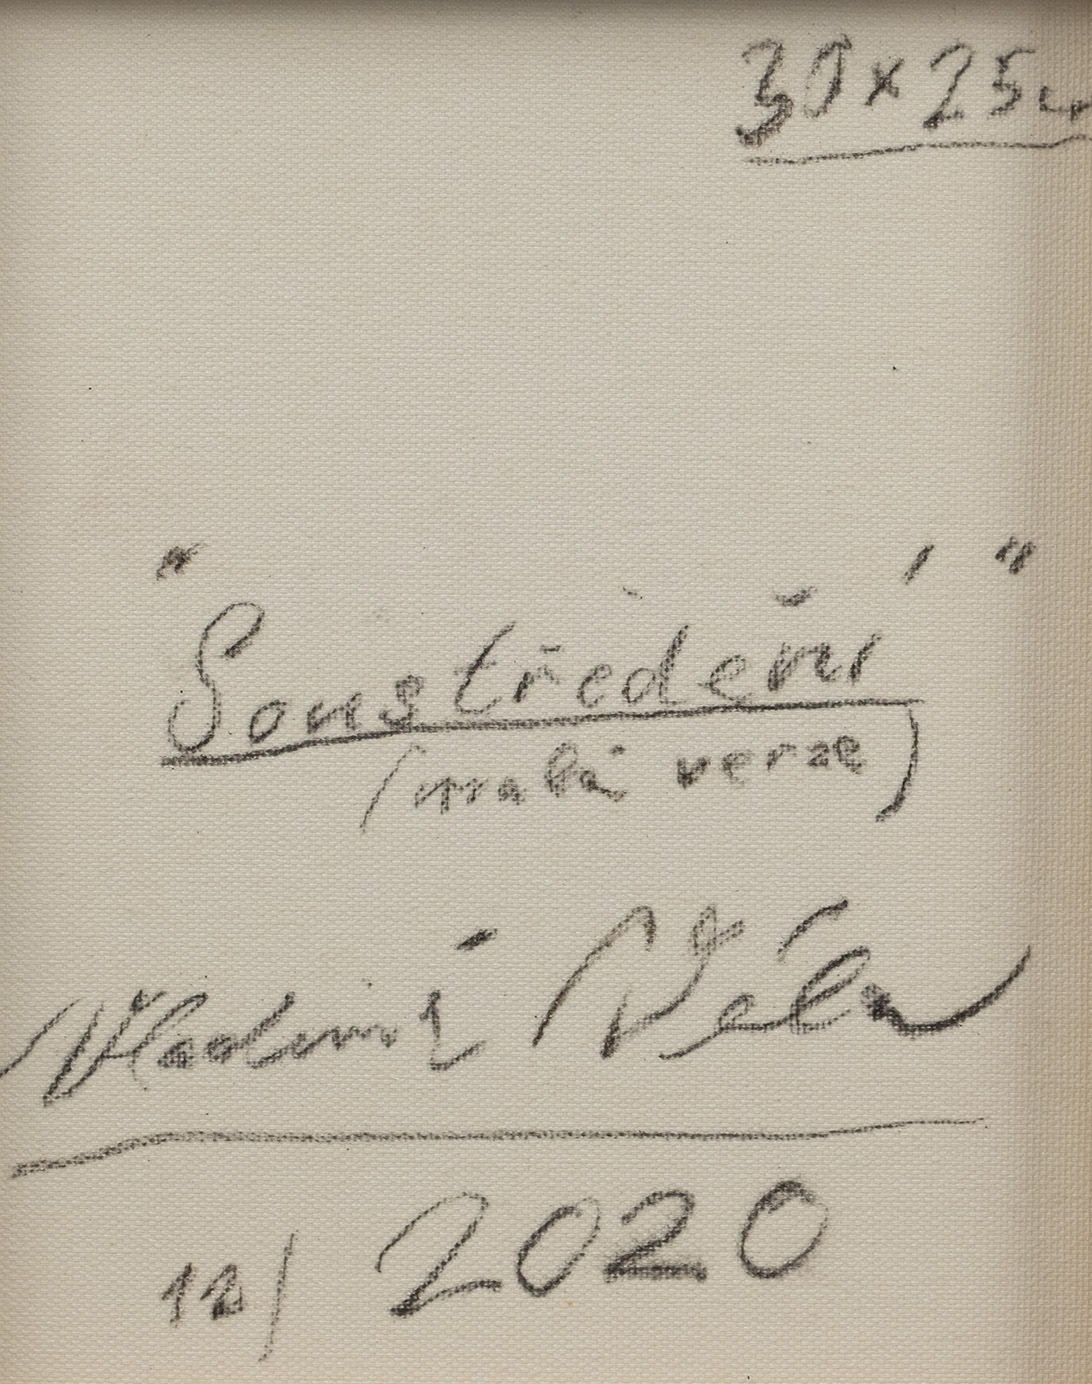 30 x 25 c
"Soustředění"
(malá verze)
Vladimír Véla
12/ 2020